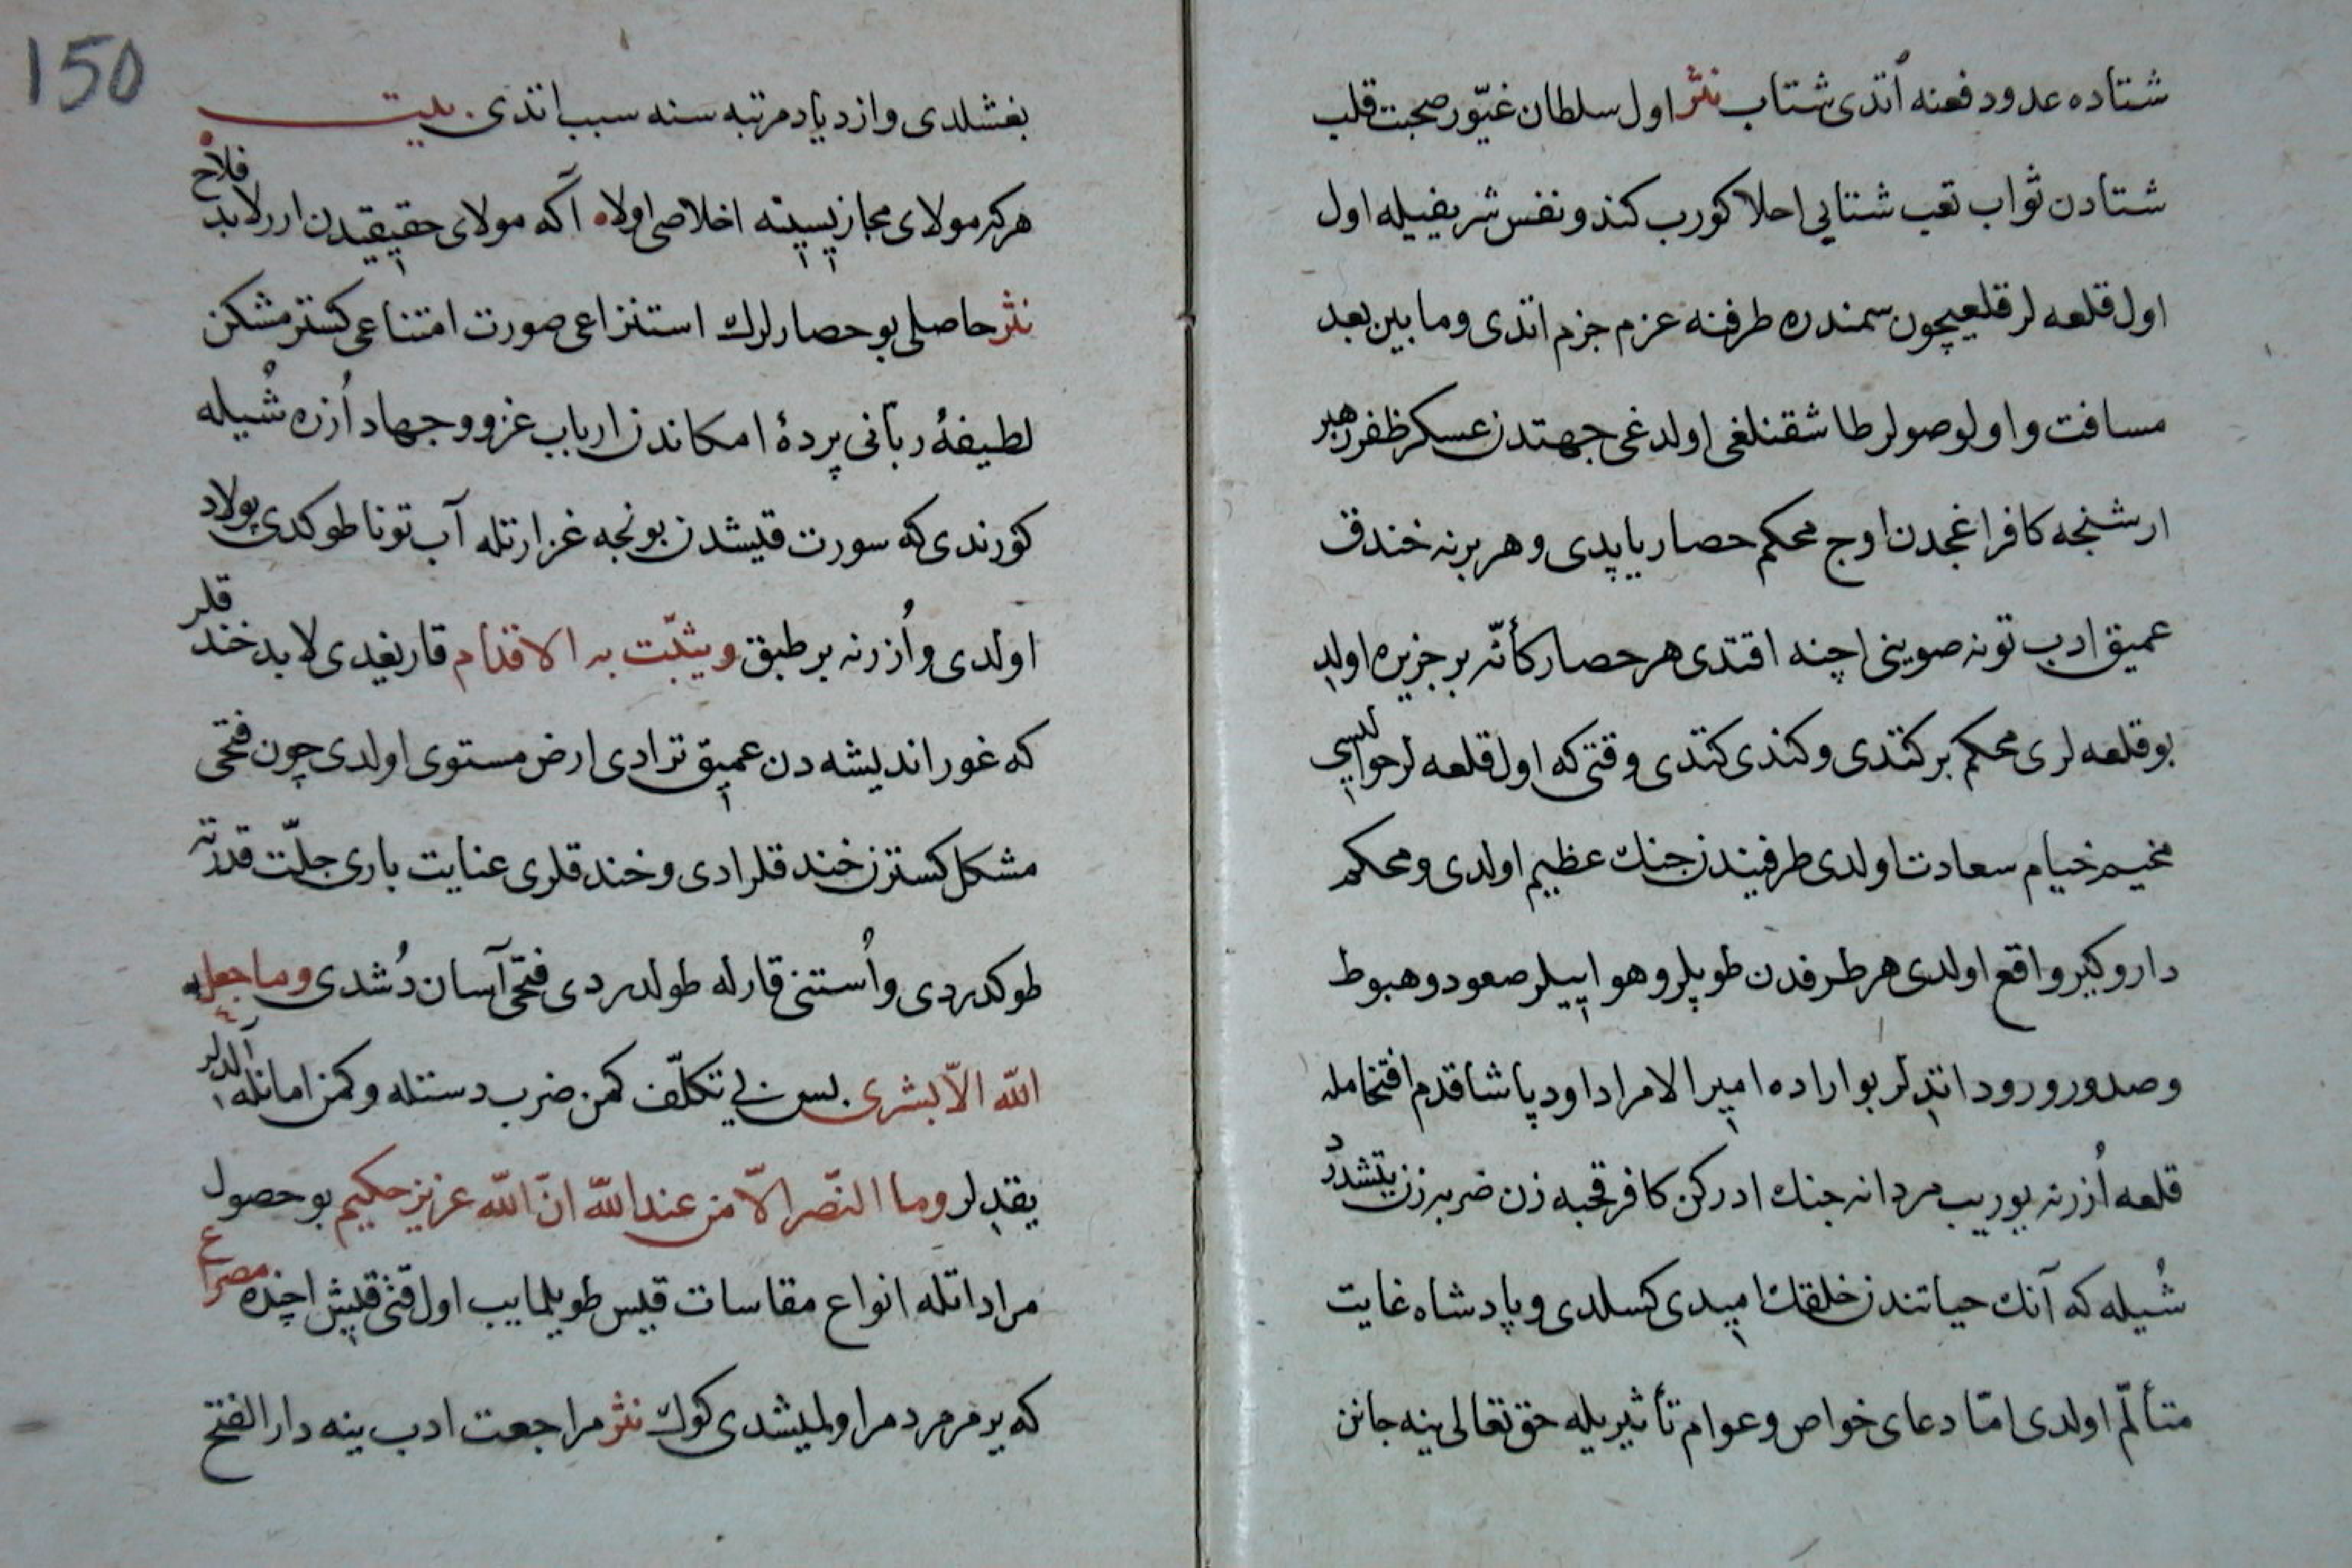 شتاده عدو دفعنه اُتدی شتاب نثر اول سلطان غیّور صحبت قلب
شتادن ثواب تعب شتایی احلا کورب کندو نفس شریفیله اول
اول قلعه لر قلعیچون سمندره طرفنه عزم جزم اتدی و ما بین بعد
مسافت و اولو صولر طاشقنلغی اولدغی جهتدن عسکر ظفر رهبر
ارشنجه کافر اغجدن اوج محکم حصار یاپدی و هر برنه خندق
عمیق ادب تونه صوینی اچنه اقتدی هر حصار کأنّه بر جزیره اولدی
بو قلعه لری محکم برکتدی و کندی کتدی وقتی که اول قلعه لر حوالیسی
مخیم خیام سعادت اولدی طرفیندن جنك عظیم اولدی و محکم
دار و کیر واقع اولدی هر طرفدن طوپلر و هواییلر صعود و هبوط
و صدور و ورود اتدیلر بو اراده امیر الامرا داود پاشا قدم افتخامله
قلعه اُزرنه یوریب مردانه جنك ادرکن کافر قحبه زن ضربزن یتشدردی
شُیله که آنك حیاتندن خلقك امیدی کسلدی و پادشاه غایت
متألّم اولدی امّا دعای خواص و عوام تأثیریله حق تعالی ینه جانن
150
بغشلدی و ازدیاد مرتبه سنه سبب اتدی بیت
هرکز مولای مجازیسینه اخلاصی اولا آکه مولای حقیقیدن ارر لابد فلاح
نثر حاصلی بو حصارلرك استنزاعی صورت امتناعی کستر مشکن
لطیفهٔ ربّانی پردهٔ امکاندن ارباب غزو و جهاد اُزره شُیله
کورندی که سورت قیشدن بونجه غزارتله آب تونا طوکدی پولاد
اولدی و اُزرنه بر طبق و یثبّت به الاقدام قار یغدی لابد خندقلر
که غور اندیشه دن عمیق تر ادی ارض مستوی اولدی چون فتحی
مشکل کسترن خندقلر ادی و خندقلری عنایت باری جلّت قدرته
طوکدردی و اُستنی قارله طولدردی فتحی آسان دُشدی و ما جعله
الله الاّ بشری پس بی تکلّف کمن ضرب دستله و کمن امانله آلدیلر
یقدیلر و ما النّصر الاّ من عند الله انّ الله عزیز حکیم بو حصول
مراداتله انواع مقاسات قیس طویلمایب اول قتی قیش اچنده مصراع
که یرمرمر دمر اولمیشدی کوك نثر مراجعت ادب ینه دار الفتح